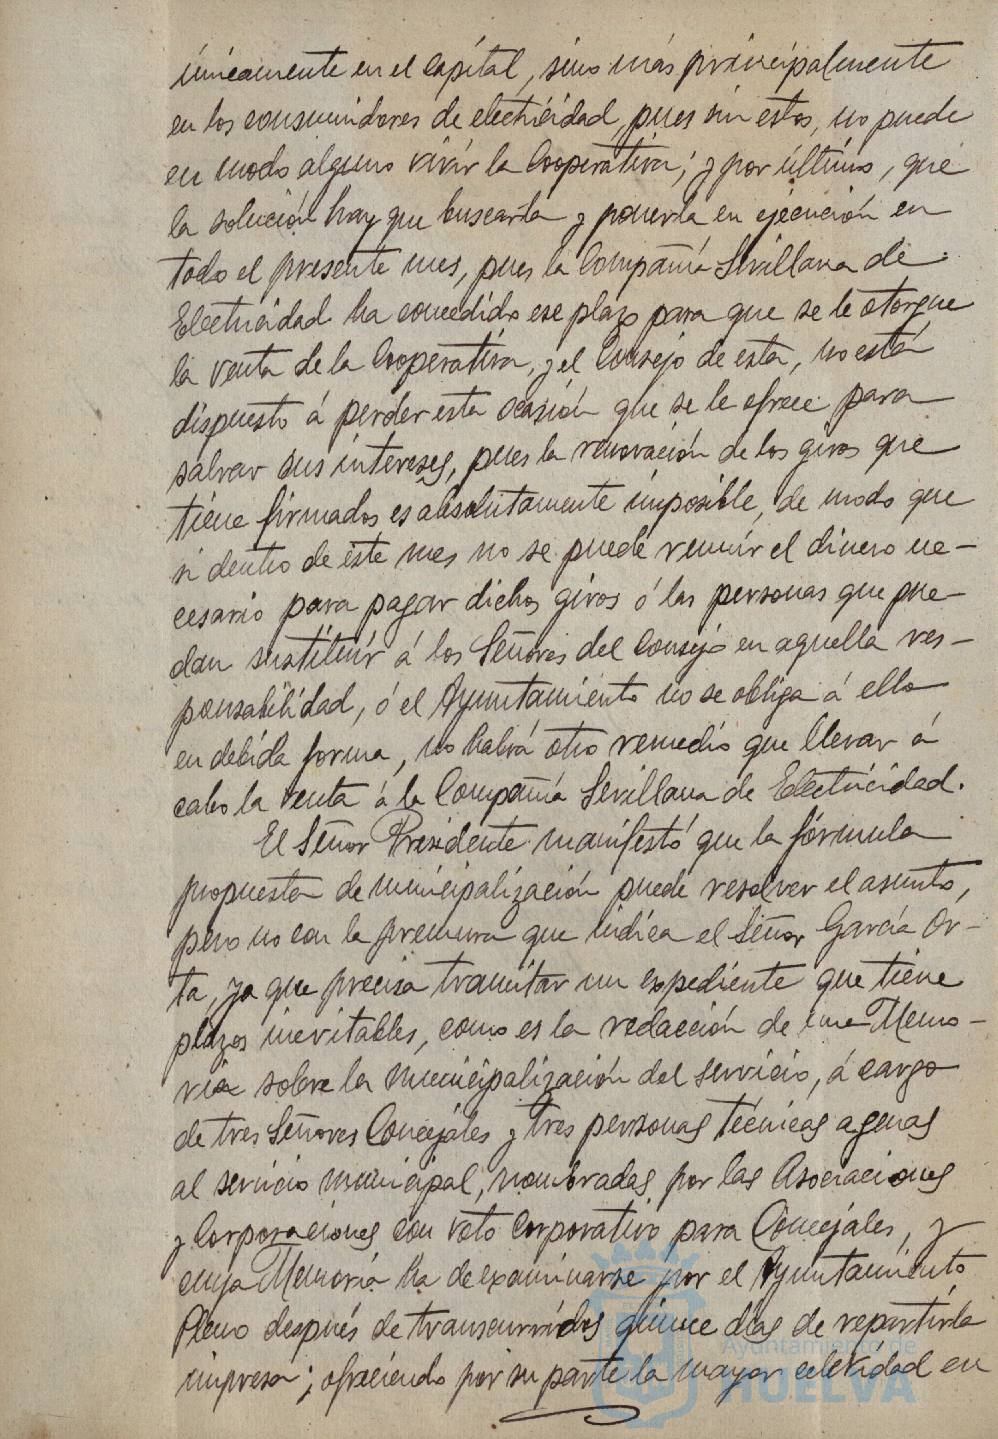 únicamente en el capital, sino más principalmente
en los consumidores de electricidad, pues sin estos, no puede
en modo alguno vivir la Cooperativa; y por último, que
la solución hay que buscarla y ponerla en ejecución en
todo el presente mes, pues la Compañía Sevillana de
Electricidad ha concedido ese plazo para que se le otorgue
la venta de la Cooperativa, y el Consejo de esta, no está
dispuesto á perder esta ocasión que se le ofrece para
salvar sus intereses, pues la renovación de los giros que
tiene firmados es absolutamente imposible, de modo que
si dentro de este mes no se puede reunir el dinero ne-
cesario para pagar dichos giros ó las personas que pue-
dan sustituir á los Señores del Consejo en aquella res-
ponsabilidad, ó el Ayuntamiento no se obliga á ello
en debida forma, no habrá otro remedio que llevar á
cabo la venta á la Compañía Sevillana de Electricidad.
El Señor Presidente manifestó que la fórmula
propuesta de municipalización puede resolver el asunto,
pero no con la premura que indica el Señor García Or-
ta, ya que precisa tramitar un expediente que tiene
plazos inevitables, como es la redacción de una Memo-
ria sobre la municipalización del servicio, á cargo
de tres Señores Concejales y tres personas técnicas agenas
al servicio municipal, nombradas por las Asociaciones
y Corporaciones con voto corporativo para Concejales, y
cuya Memoria ha de examinarse por el Ayuntamiento
Pleno después de transcurridos quince días de repartirla
impresa; ofreciendo por su parte la mayor celeridad en
Ayuntamiento de
HUELVA